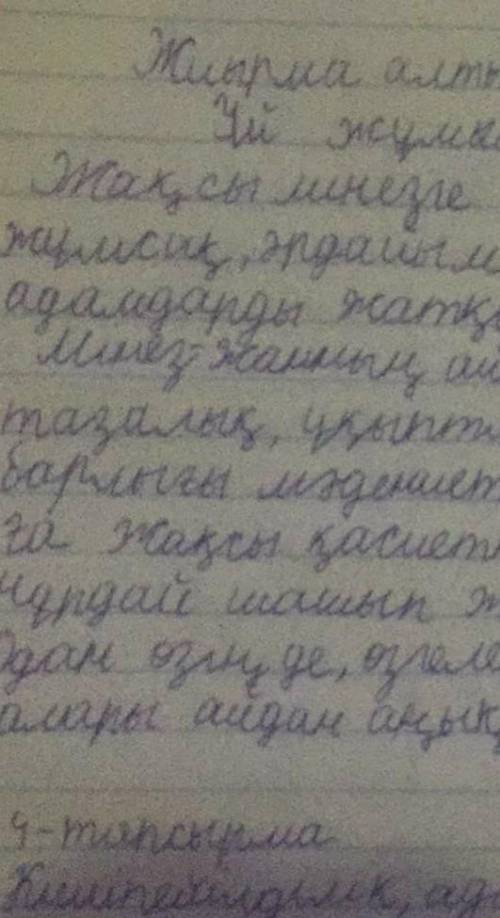 Жиырма алты
Үй жұмы
Жақсы мінезге
жұмсақ, әрдайым
адамдарды жатқ
Мінез-жанның ай
тазалық, ұқыпт
барлығы мәдениет
ға жақсы қасиет
Нұрдай шашып ж
Одан өзің де, өзгеле
алары айдан анық
4-тапсырма
Кішіпейілділік, ад